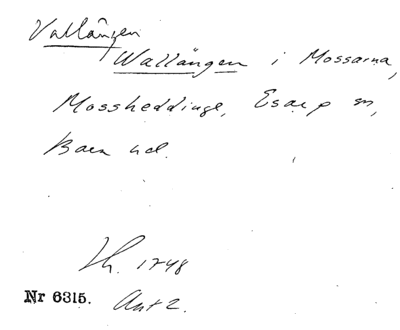 Vallängen
Wallängen i Mossarna,
Mossheddinge, Esarp sn,
Bara hd.
Lh. 1748
Nr 6315. Akt 2.